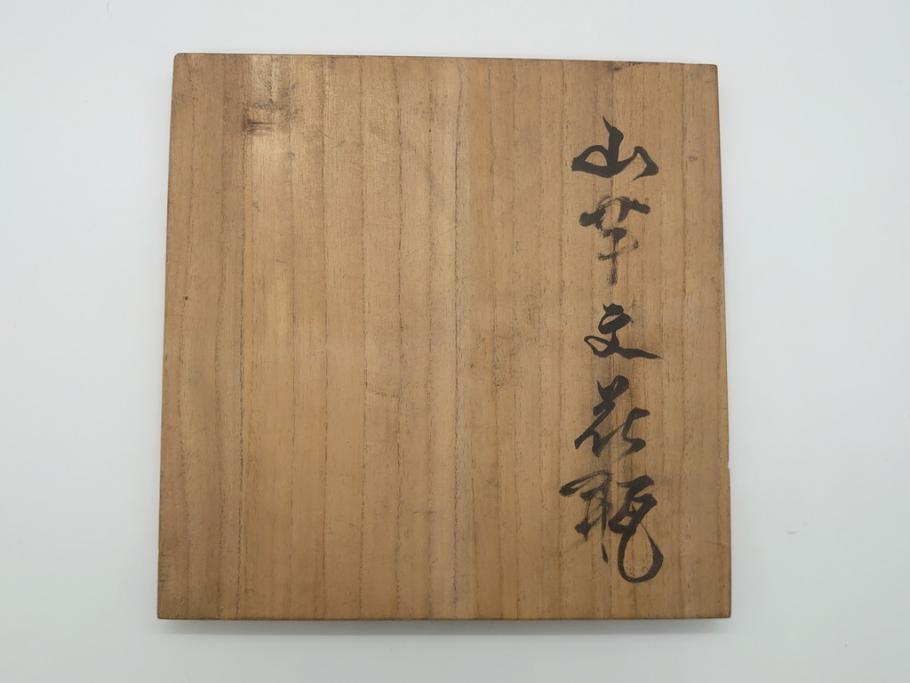 山芋文花瓶